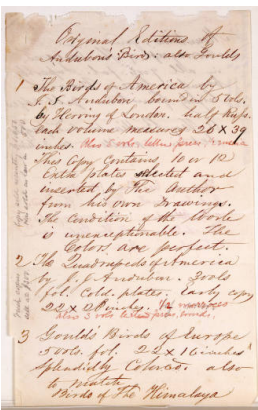 Original Editions of
Audubon's Birds. also Goulds
1 The Birds of America by
J. J. Audubon bound in 5 vols.
by Herring of London. half Russ.
each volume measures 26 X 39
inches. Also 5 vols. letter press
This Copy Contains, 10 or 12
Extra plates selected and
inserted by the Author
from his own Drawings.
The Condition of the Work
is unexceptionable. The
Colors are perfect.
2 The Quadrupeds of America
by J. J. Audubon. 2 vols
fol. Cold. plates. Early copy
22 X 28 inches. 1/2 morocco
also 3 vols letter press, bound.
3 Gould's Birds of Europe
5 vols. fol. 22 X 16 inches
Splendidly Colored. also
to
Birds of The Himalaya